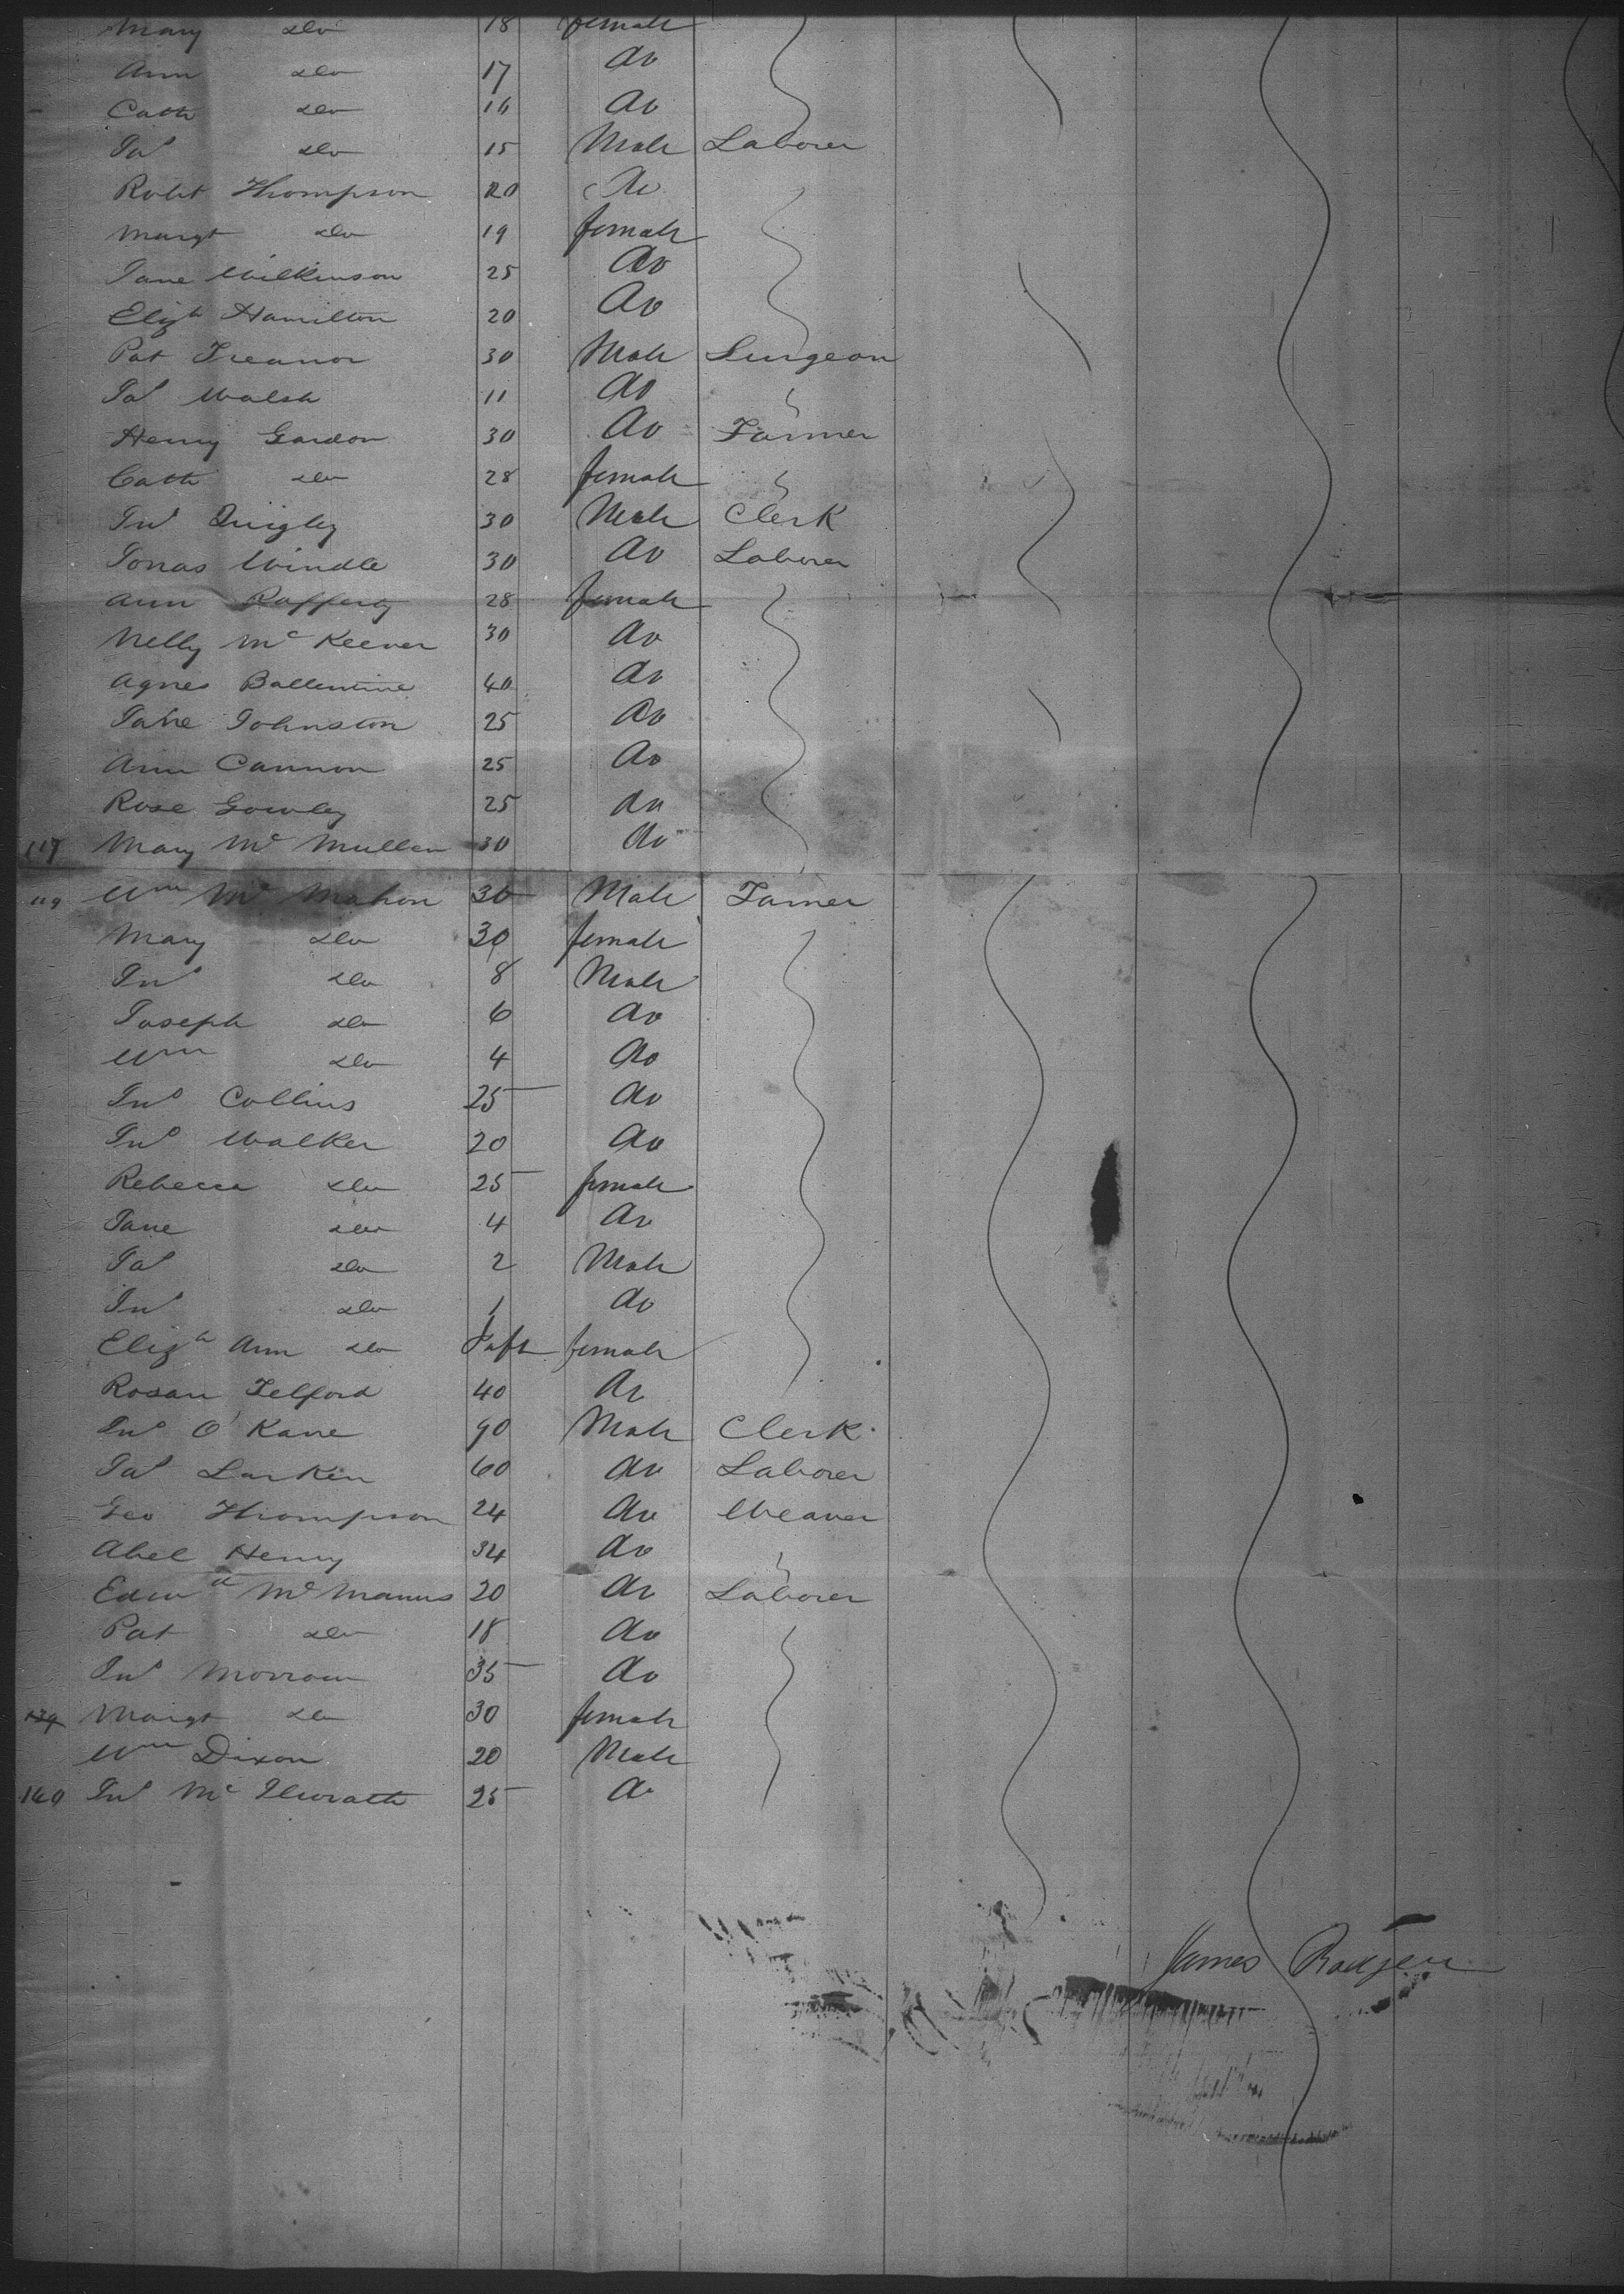 Mary do 18 female
Ann do 17 do
Cath do 16 do
Jas do 15 Male Laborer
Robt Thompson 20 do
Margt do 19 female
Jane Wilkinson 25 do
Elizh Hamilton 20 do
Pat Treanor 30 Male Surgeon
Jas Walsh 11 do
Henry Gordon 30 do Farmer
Cath do 28 female
Jno Quigley 30 Male Clerk
Jonas Windle 30 do Laborer
Ann Rafferty 28 female
Nelly Mc Keever 30 do
Agnes Ballentine 40 do
Jane Johnston 25 do
Ann Cannon 25 do
Rose Gowley 25 do
Mary Mc Mullen 30 do
119 Wm Mc Mahon 30 Male Farmer
Mary do 30 female
Jno do 8 Male
Joseph do 6 do
Wm do 4 do
Jno Collins 25 do
Jno Walker 20 do
Rebecca do 25 female
Jane do 4 do
Jas do 2 Male
Jno do 1 do
Elizh Ann do Inft female
Rosan Telford 40 do
Jno O'Kane 40 Male Clerk
Jas Larkin 60 do Laborer
Geo Thompson 24 do Weaver
Abel Henry 34 do
Edwd Mc Manus 20 do Laborer
Pat do 18 do
Jno Morrow 35 do
139 Margt do 30 female
Wm Dixon 20 Male
140 Jno Mc Ilwrath 25 do
James Rodgers